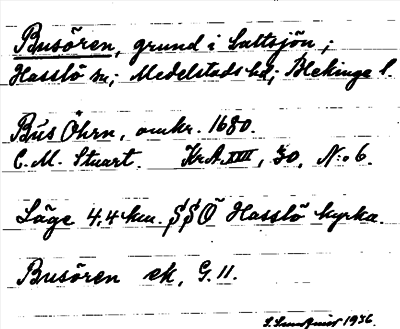 Busören, grund i Saltsjön;
Hasslö sn; Medelstads hd; Blekinge l.
Bus Öhrn, omkr. 1680.
C. M. Stuart. Kr.A. XIII, 30, N:o 6.
Läge 4,4 km. SSÖ Hasslö kyrka.
Busören ek, G. 11.
1936